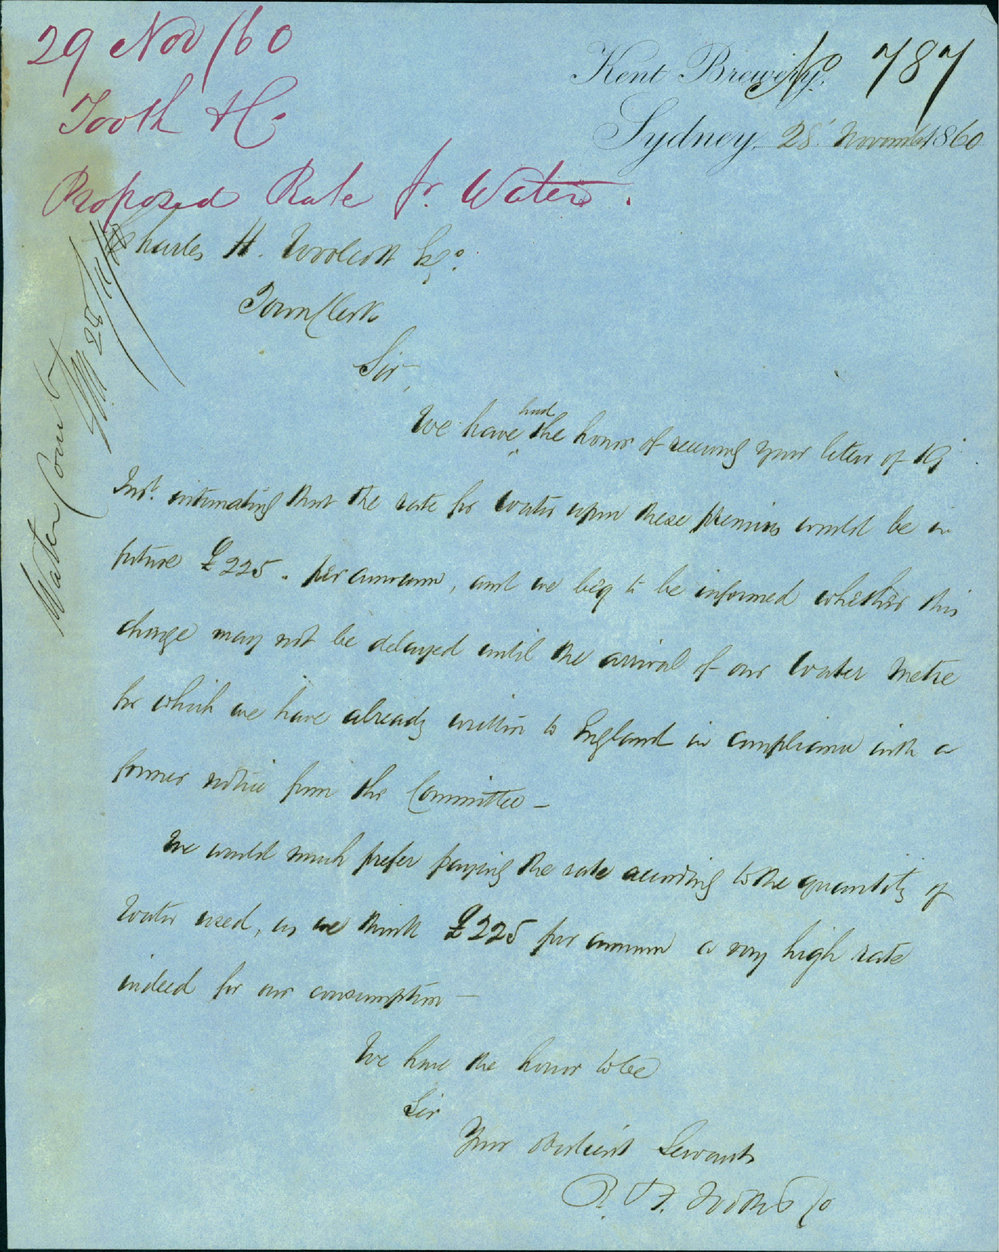 29 Nov/60
Tooth & Co
Proposed Rate fr. Water.
No 787
Kent Brewery,
Sydney 28' November 1860
Charles H. Woolcott Esqo.
Town Clerk
Sir,
We have had the honor of receiving your letter of 19
Inst. intimating that the rate for Water upon these premises would be in
future £225. per annum, and we beg to be informed whether this
charge may not be delayed until the arrival of our Water Metre
for which we have already written to England in compliance with a
former notice from the Committee—
We would much prefer paying the rate according to the quantity of
Water used, as we think £225 per annum a very high rate
indeed for our consumption—
We have the honor to be
Sir
Your obedient Servants
R. & F. Tooth & Co
Water Comt
28/11/60